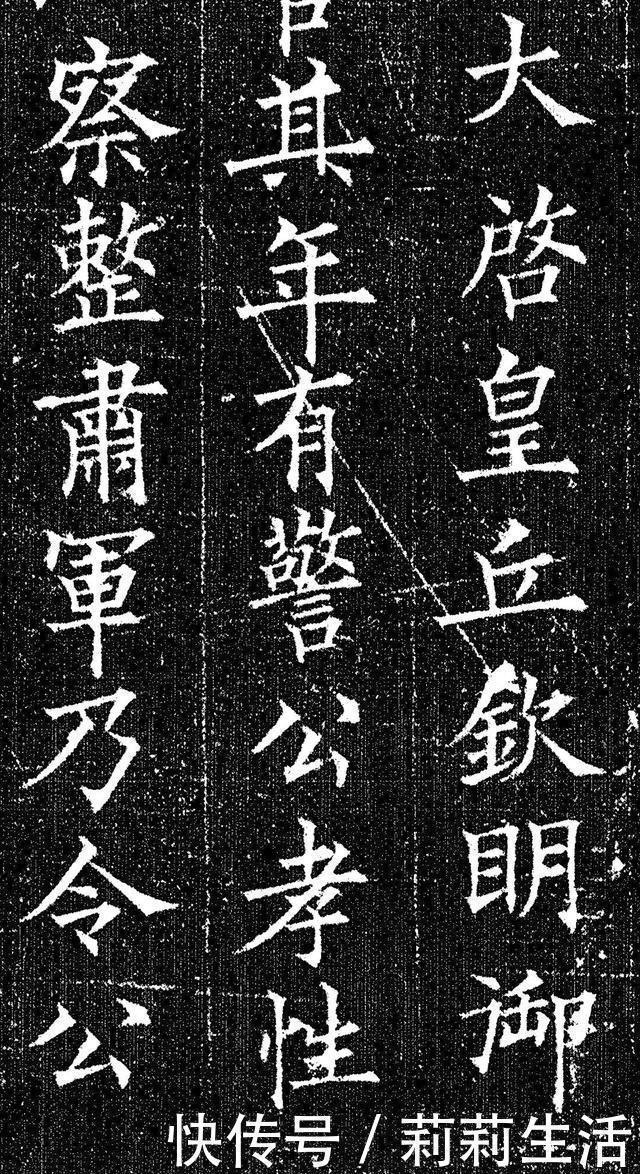 大啓皇丘欽明御
其年有警公孝性
察整肅軍乃令公
快传号/莉莉生活